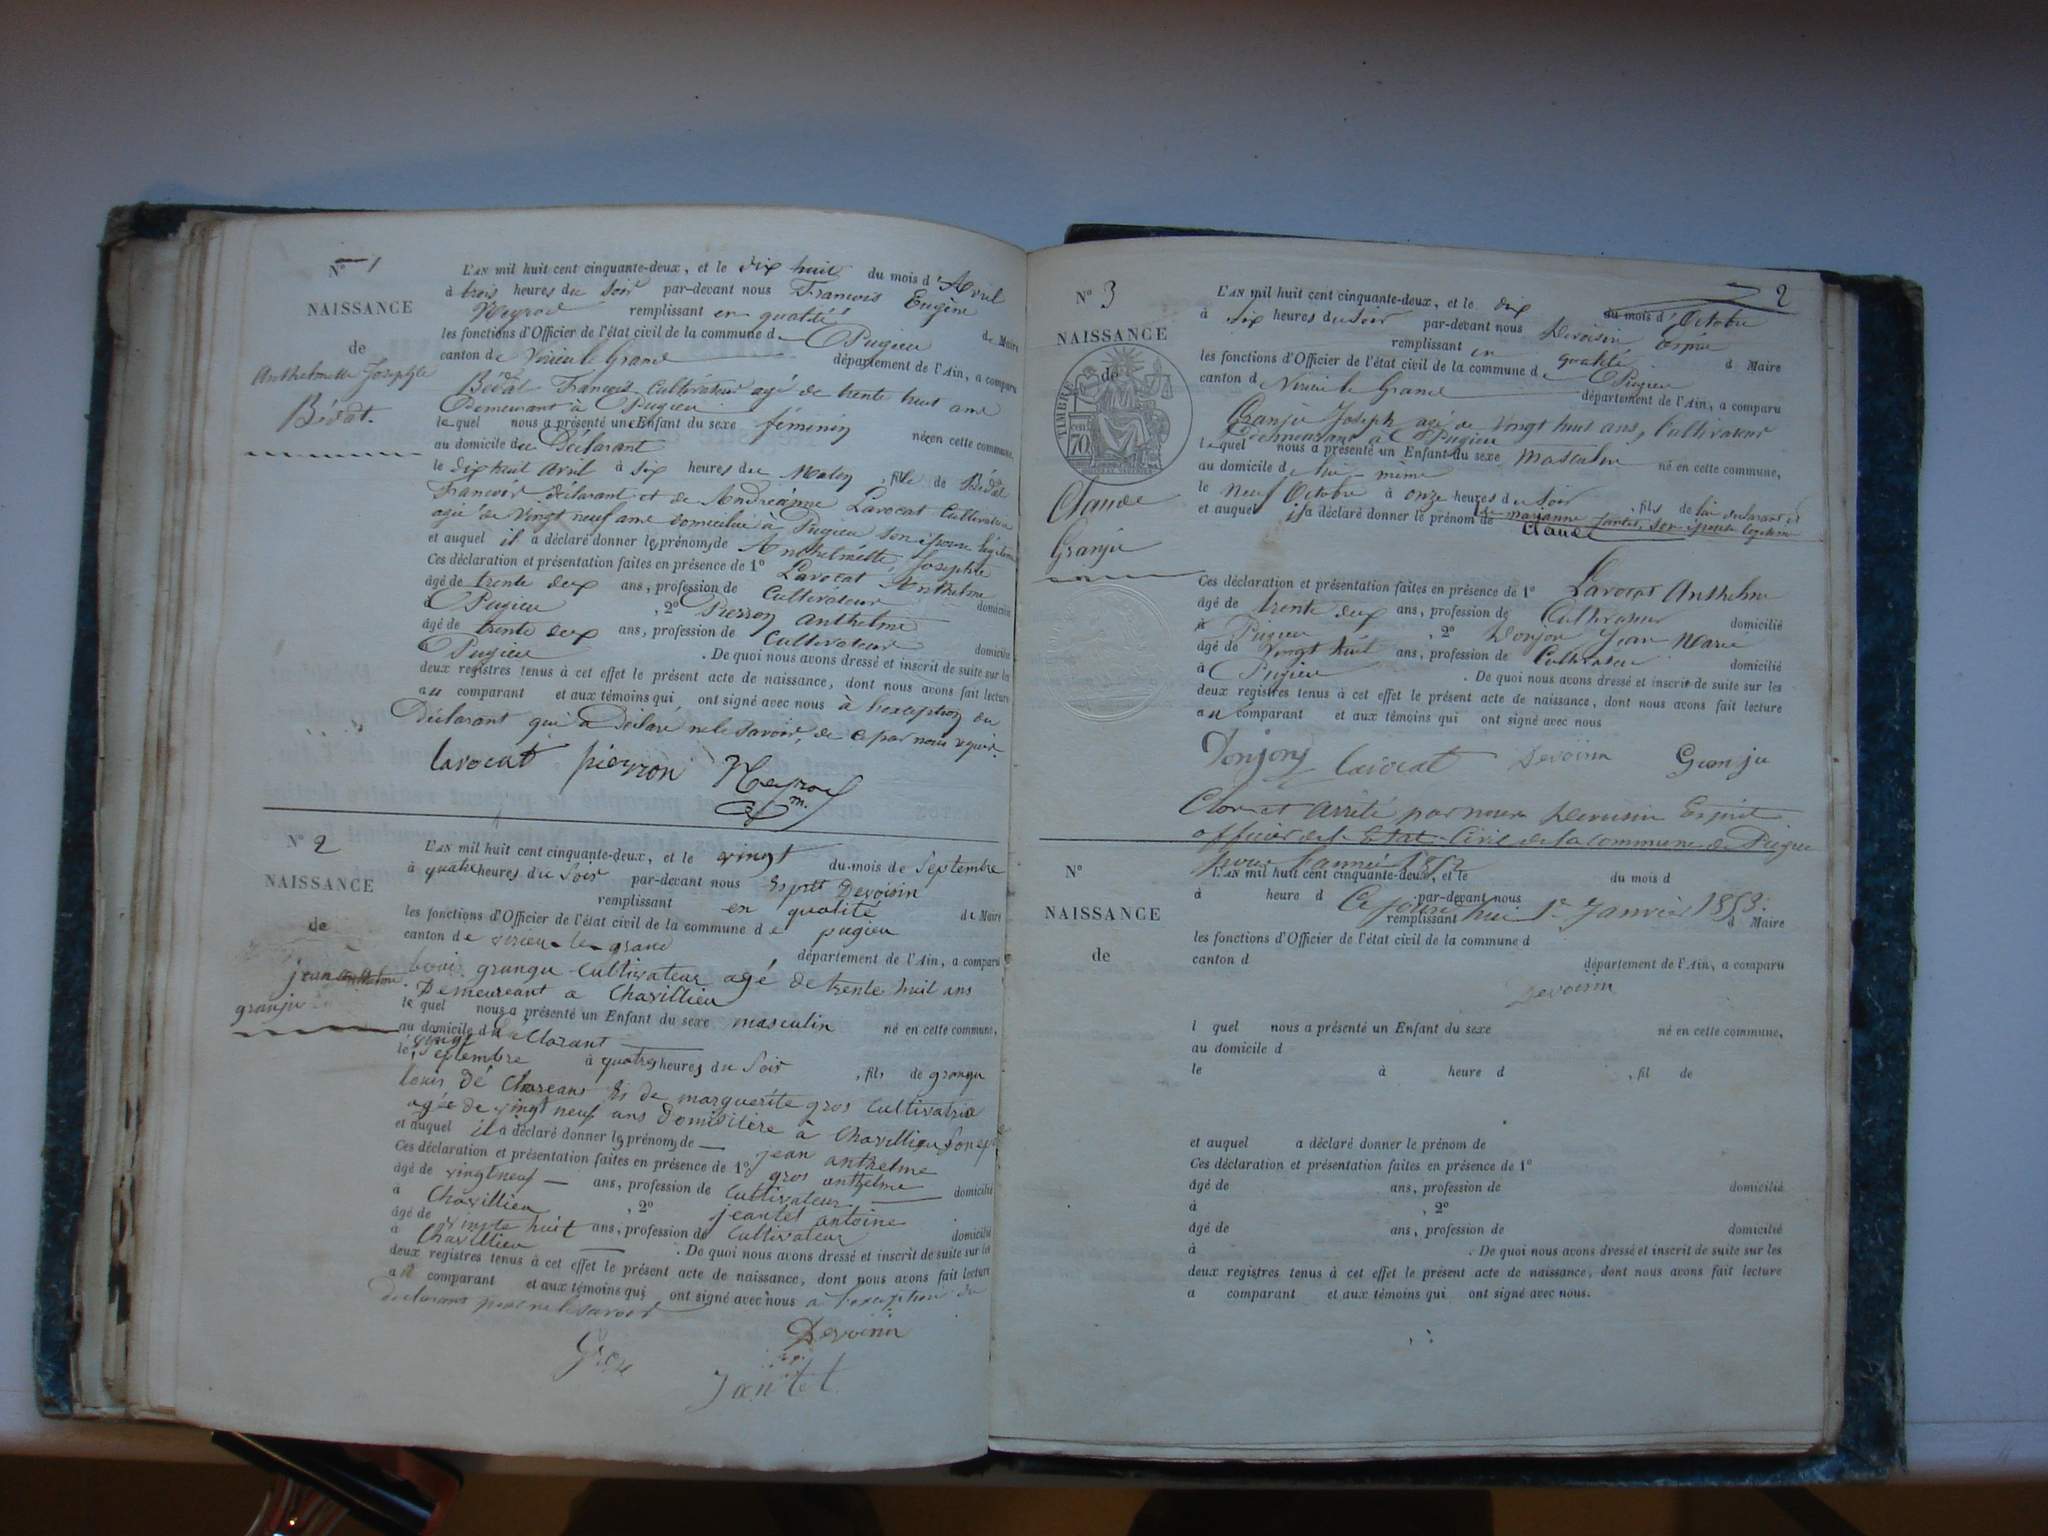 N° 1
NAISSANCE
de
Anthelmette Josephte
Bédat.
L'AN mil huit cent cinquante-deux, et le dix huit du mois d'Avril
à trois heures du Soir par-devant nous Francois Eugène
Neyrod remplissant en qualité de Maire
les fonctions d'Officier de l'état civil de la commune de Pugieu
canton de Virieu le Grand département de l'Ain, a comparu
Bédat Francois Cultivateur agé de trente huit ans
Demeurant à Pugieu
lequel nous a présenté un Enfant du sexe féminin née en cette commune,
au domicile du Déclarant
le dix huit Avril à six heures du Matin, fille de Bédat
Francois déclarant et de Andréanne Lavocat Cultivatrice
agée de vingt neuf ans domiciliée à Pugieu son épouse légitime
et auquel il a déclaré donner les prénoms de Anthelmette Josephte
Ces déclaration et présentation faites en présence de 1° Lavocat Anthelme
âgé de trente deux ans, profession de Cultivateur domicilié
à Pugieu, 2° Pierron Anthelme
âgé de trente deux ans, profession de Cultivateur domicilié
Pugieu. De quoi nous avons dressé et inscrit de suite sur les
deux registres tenus à cet effet le présent acte de naissance, dont nous avons fait lecture
au comparant et aux témoins qui ont signé avec nous à l'exception du
Déclarant qui a Déclaré ne le savoir, de ce par nous requis.
Lavocat pierron Neyrod
m.
N° 2
NAISSANCE
de
jean anthelme
granju
L'AN mil huit cent cinquante-deux, et le vingt du mois de Septembre
à quatre heures du Soir par-devant nous Esprit Devoisin
remplissant en qualité de Maire
les fonctions d'Officier de l'état civil de la commune de pugieu
canton de virieu le grand département de l'Ain, a comparu
Louis granju Cultivateur agé de trente huit ans
Demeureant a Chavillieu
lequel nous a présenté un Enfant du sexe masculin né en cette commune,
au domicile du déClarant
le vingt Septembre à quatre heures du Soir, fils de granju
louis dé Clareant Et de marguerite gros Cultivatrice
agée de vingt neuf ans Domisilière à Chavillieu
et auquel il a déclaré donner les prénoms de jean anthelme
Ces déclaration et présentation faites en présence de 1° gros anthelme
âgé de vingt neuf ans, profession de Cultivateur domicilié
à Chavillieu, 2° jeantet antoine
âgé de trente huit ans, profession de Cultivateur domicilié
à Chavillieu. De quoi nous avons dressé et inscrit de suite sur les
deux registres tenus à cet effet le présent acte de naissance, dont nous avons fait lecture
au comparant et aux témoins qui ont signé avec nous a l'exception du
declarant pour ne le savoir
Devoisin
Gros
Jantet
2
N° 3
NAISSANCE
de
TIMBRE
70 cen
Claude
Granju
L'AN mil huit cent cinquante-deux, et le dix du mois d'Octobre
à six heures du Soir par-devant nous Devoisin Esprit
remplissant en qualité d Maire
les fonctions d'Officier de l'état civil de la commune de Pugieu
canton d Virieu le Grand département de l'Ain, a comparu
Granju Joseph agé de vingt huit ans, Cultivateur
Demeurant à Pugieu
lequel nous a présenté un Enfant du sexe Masculin né en cette commune,
au domicile de lui-même
le neuf Octobre à onze heures du Soir, fils de lui declarant et
de marianne jantet, son épouse legitime
et auquel il a déclaré donner le prénom de Claude
Ces déclaration et présentation faites en présence de 1° Lavocat Anthelme
âgé de trente deux ans, profession de Cultivateur domicilié
à Pugieu, 2° Donjon Jean Marie
âgé de vingt huit ans, profession de Cultivateur domicilié
à Pugieu. De quoi nous avons dressé et inscrit de suite sur les
deux registres tenus à cet effet le présent acte de naissance, dont nous avons fait lecture
au comparant et aux témoins qui ont signé avec nous
Donjon Lavocat Devoisin Granju
Clos et arrêté par nous Devoisin Esprit
officier de l'Etat Civil de la commune de Pugieu
pour l'année 1852
Ce jourd'hui 1er Janvier 1853.
Devoisin
N°
NAISSANCE
de
L'AN mil huit cent cinquante-deux, et le du mois d
à heure d par-devant nous
remplissant d Maire
les fonctions d'Officier de l'état civil de la commune d
canton d département de l'Ain, a comparu
l quel nous a présenté un Enfant du sexe né en cette commune,
au domicile d
le à heure d, fil de
et auquel a déclaré donner le prénom de
Ces déclaration et présentation faites en présence de 1°
âgé de ans, profession de domicilié
à, 2°
âgé de ans, profession de domicilié
à. De quoi nous avons dressé et inscrit de suite sur les
deux registres tenus à cet effet le présent acte de naissance, dont nous avons fait lecture
a comparant et aux témoins qui ont signé avec nous.